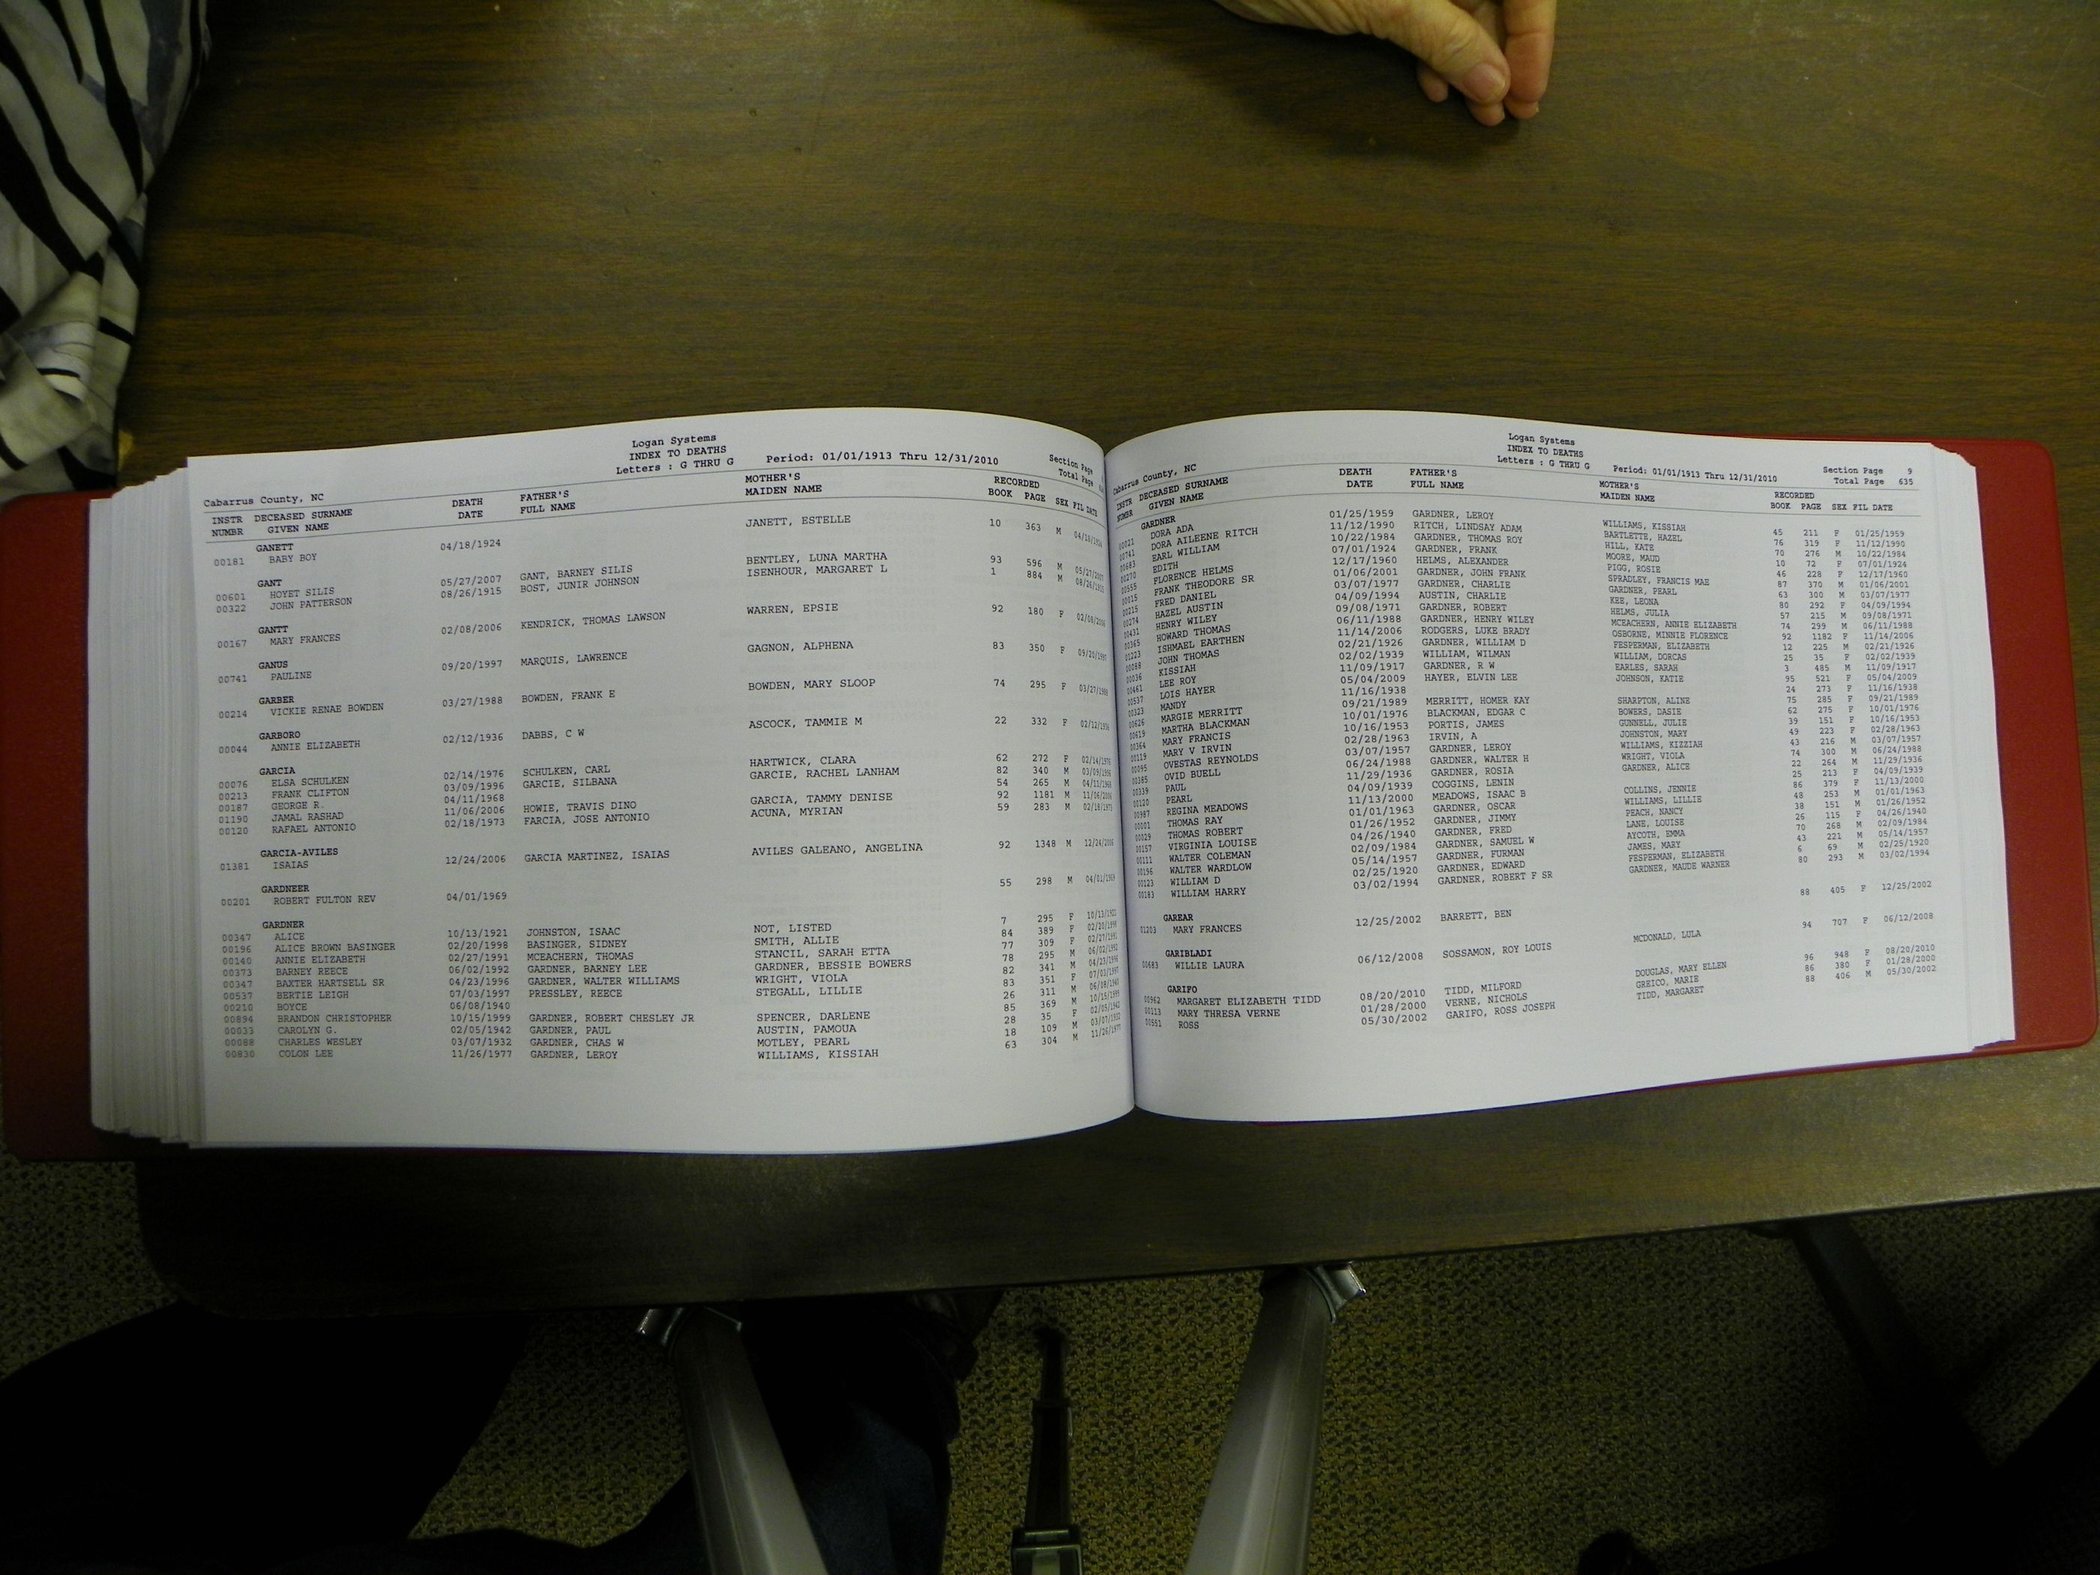 Logan Systems
INDEX TO DEATHS
Letters : G THRU G Period: 01/01/1913 Thru 12/31/2010
Section Page
Total Page
Cabarrus County, NC
INSTR NUMBR DECEASED SURNAME GIVEN NAME DEATH DATE FATHER'S FULL NAME MOTHER'S MAIDEN NAME RECORDED BOOK PAGE SEX FIL DATE
GANETT
00181 BABY BOY 04/18/1924 JANETT, ESTELLE 10 363 M 04/18/1924
GANT
00601 HOYET SILIS 05/27/2007 GANT, BARNEY SILIS BENTLEY, LUNA MARTHA 93 596 M 05/27/2007
00322 JOHN PATTERSON 08/26/1915 BOST, JUNIR JOHNSON ISENHOUR, MARGARET L 1 884 M 08/26/1915
GANTT
00167 MARY FRANCES 02/08/2006 KENDRICK, THOMAS LAWSON WARREN, EPSIE 92 180 F 02/08/2006
GANUS
00741 PAULINE 09/20/1997 MARQUIS, LAWRENCE GAGNON, ALPHENA 83 350 F 09/20/1997
GARBER
00214 VICKIE RENAE BOWDEN 03/27/1988 BOWDEN, FRANK E BOWDEN, MARY SLOOP 74 295 F 03/27/1988
GARBORO
00044 ANNIE ELIZABETH 02/12/1936 DABBS, C W ASCOCK, TAMMIE M 22 332 F 02/12/1936
GARCIA
00076 ELSA SCHULKEN 02/14/1976 SCHULKEN, CARL HARTWICK, CLARA 62 272 F 02/14/1976
00213 FRANK CLIFTON 03/09/1996 GARCIE, SILBANA GARCIE, RACHEL LANHAM 82 340 M 03/09/1996
00187 GEORGE R. 04/11/1968 54 265 M 04/11/1968
01190 JAMAL RASHAD 11/06/2006 HOWIE, TRAVIS DINO GARCIA, TAMMY DENISE 92 1181 M 11/06/2006
00120 RAFAEL ANTONIO 02/18/1973 FARCIA, JOSE ANTONIO ACUNA, MYRIAN 59 283 M 02/18/1973
GARCIA-AVILES
01381 ISAIAS 12/24/2006 GARCIA MARTINEZ, ISAIAS AVILES GALEANO, ANGELINA 92 1348 M 12/24/2006
GARDNEER
00201 ROBERT FULTON REV 04/01/1969 55 298 M 04/01/1969
GARDNER
00347 ALICE 10/13/1921 JOHNSTON, ISAAC NOT, LISTED 7 295 F 10/13/1921
00196 ALICE BROWN BASINGER 02/20/1998 BASINGER, SIDNEY SMITH, ALLIE 84 389 F 02/20/1998
00140 ANNIE ELIZABETH 02/27/1991 MCEACHERN, THOMAS STANCIL, SARAH ETTA 77 309 F 02/27/1991
00373 BARNEY REECE 06/02/1992 GARDNER, BARNEY LEE GARDNER, BESSIE BOWERS 78 295 M 06/02/1992
00347 BAXTER HARTSELL SR 04/23/1996 GARDNER, WALTER WILLIAMS WRIGHT, VIOLA 82 341 M 04/23/1996
00537 BERTIE LEIGH 07/03/1997 PRESSLEY, REECE STEGALL, LILLIE 83 351 F 07/03/1997
00210 BOYCE 06/08/1940 26 311 M 06/08/1940
00894 BRANDON CHRISTOPHER 10/15/1999 GARDNER, ROBERT CHESLEY JR SPENCER, DARLENE 85 369 M 10/15/1999
00033 CAROLYN G. 02/05/1942 GARDNER, PAUL AUSTIN, PAMOUA 28 35 F 02/05/1942
00088 CHARLES WESLEY 03/07/1932 GARDNER, CHAS W MOTLEY, PEARL 18 109 M 03/07/1932
00830 COLON LEE 11/26/1977 GARDNER, LEROY WILLIAMS, KISSIAH 63 304 M 11/26/1977
Logan Systems
INDEX TO DEATHS
Letters : G THRU G Period: 01/01/1913 Thru 12/31/2010
Section Page 9
Total Page 635
Cabarrus County, NC
INSTR NUMBR DECEASED SURNAME GIVEN NAME DEATH DATE FATHER'S FULL NAME MOTHER'S MAIDEN NAME RECORDED BOOK PAGE SEX FIL DATE
GARDNER
00021 DORA ADA 01/25/1959 GARDNER, LEROY WILLIAMS, KISSIAH 45 211 F 01/25/1959
00741 DORA AILEENE RITCH 11/12/1990 RITCH, LINDSAY ADAM BARTLETTE, HAZEL 76 319 F 11/12/1990
00683 EARL WILLIAM 10/22/1984 GARDNER, THOMAS ROY HILL, KATE 70 276 M 10/22/1984
00270 EDITH 07/01/1924 GARDNER, FRANK MOORE, MAUD 10 72 F 07/01/1924
00555 FLORENCE HELMS 12/17/1960 HELMS, ALEXANDER PIGG, ROSIE 46 228 F 12/17/1960
00015 FRANK THEODORE SR 01/06/2001 GARDNER, JOHN FRANK SPRADLEY, FRANCIS MAE 87 370 M 01/06/2001
00215 FRED DANIEL 03/07/1977 GARDNER, CHARLIE GARDNER, PEARL 63 300 M 03/07/1977
00274 HAZEL AUSTIN 04/09/1994 AUSTIN, CHARLIE KEE, LEONA 80 292 F 04/09/1994
00431 HENRY WILEY 09/08/1971 GARDNER, ROBERT HELMS, JULIA 57 215 M 09/08/1971
00365 HOWARD THOMAS 06/11/1988 GARDNER, HENRY WILEY MCEACHERN, ANNIE ELIZABETH 74 299 M 06/11/1988
01223 ISHMAEL EARTHEN 11/14/2006 RODGERS, LUKE BRADY OSBORNE, MINNIE FLORENCE 92 1182 F 11/14/2006
00088 JOHN THOMAS 02/21/1926 GARDNER, WILLIAM D FESPERMAN, ELIZABETH 12 225 M 02/21/1926
00036 KISSIAH 02/02/1939 WILLIAM, WILMAN WILLIAM, DORCAS 25 35 F 02/02/1939
00461 LEE ROY 11/09/1917 GARDNER, R W EARLES, SARAH 3 485 M 11/09/1917
00537 LOIS HAYER 05/04/2009 HAYER, ELVIN LEE JOHNSON, KATIE 95 521 F 05/04/2009
00323 MANDY 11/16/1938 24 273 F 11/16/1938
00626 MARGIE MERRITT 09/21/1989 MERRITT, HOMER KAY SHARPTON, ALINE 75 285 F 09/21/1989
00619 MARTHA BLACKMAN 10/01/1976 BLACKMAN, EDGAR C BOWERS, DASIE 62 275 F 10/01/1976
00364 MARY FRANCIS 10/16/1953 PORTIS, JAMES GUNNELL, JULIE 39 151 F 10/16/1953
00119 MARY V IRVIN 02/28/1963 IRVIN, A JOHNSTON, MARY 49 223 F 02/28/1963
00095 OVESTAS REYNOLDS 03/07/1957 GARDNER, LEROY WILLIAMS, KIZZIAH 43 216 M 03/07/1957
00385 OVID BUELL 06/24/1988 GARDNER, WALTER H WRIGHT, VIOLA 74 300 M 06/24/1988
00339 PAUL 11/29/1936 GARDNER, ROSIA GARDNER, ALICE 22 264 M 11/29/1936
00120 PEARL 04/09/1939 COGGINS, LENIN 25 213 F 04/09/1939
00987 REGINA MEADOWS 11/13/2000 MEADOWS, ISAAC B COLLINS, JENNIE 86 379 F 11/13/2000
00001 THOMAS RAY 01/01/1963 GARDNER, OSCAR WILLIAMS, LILLIE 48 253 M 01/01/1963
00029 THOMAS ROBERT 01/26/1952 GARDNER, JIMMY PEACH, NANCY 38 151 M 01/26/1952
00157 VIRGINIA LOUISE 04/26/1940 GARDNER, FRED LANE, LOUISE 26 115 F 04/26/1940
00111 WALTER COLEMAN 02/09/1984 GARDNER, SAMUEL W AYCOTH, EMMA 70 268 M 02/09/1984
00196 WALTER WARDLOW 05/14/1957 GARDNER, FURMAN JAMES, MARY 43 221 M 05/14/1957
00123 WILLIAM D 02/25/1920 GARDNER, EDWARD FESPERMAN, ELIZABETH 6 69 M 02/25/1920
00183 WILLIAM HARRY 03/02/1994 GARDNER, ROBERT F SR GARDNER, MAUDE WARNER 80 293 M 03/02/1994
GAREAR
01203 MARY FRANCES 12/25/2002 BARRETT, BEN 88 405 F 12/25/2002
GARIBLADI
00683 WILLIE LAURA 06/12/2008 SOSSAMON, ROY LOUIS MCDONALD, LULA 94 707 F 06/12/2008
GARIFO
00962 MARGARET ELIZABETH TIDD 08/20/2010 TIDD, MILFORD DOUGLAS, MARY ELLEN 96 948 F 08/20/2010
00113 MARY THRESA VERNE 01/28/2000 VERNE, NICHOLS GREICO, MARIE 86 380 F 01/28/2000
00551 ROSS 05/30/2002 GARIFO, ROSS JOSEPH TIDD, MARGARET 88 406 M 05/30/2002